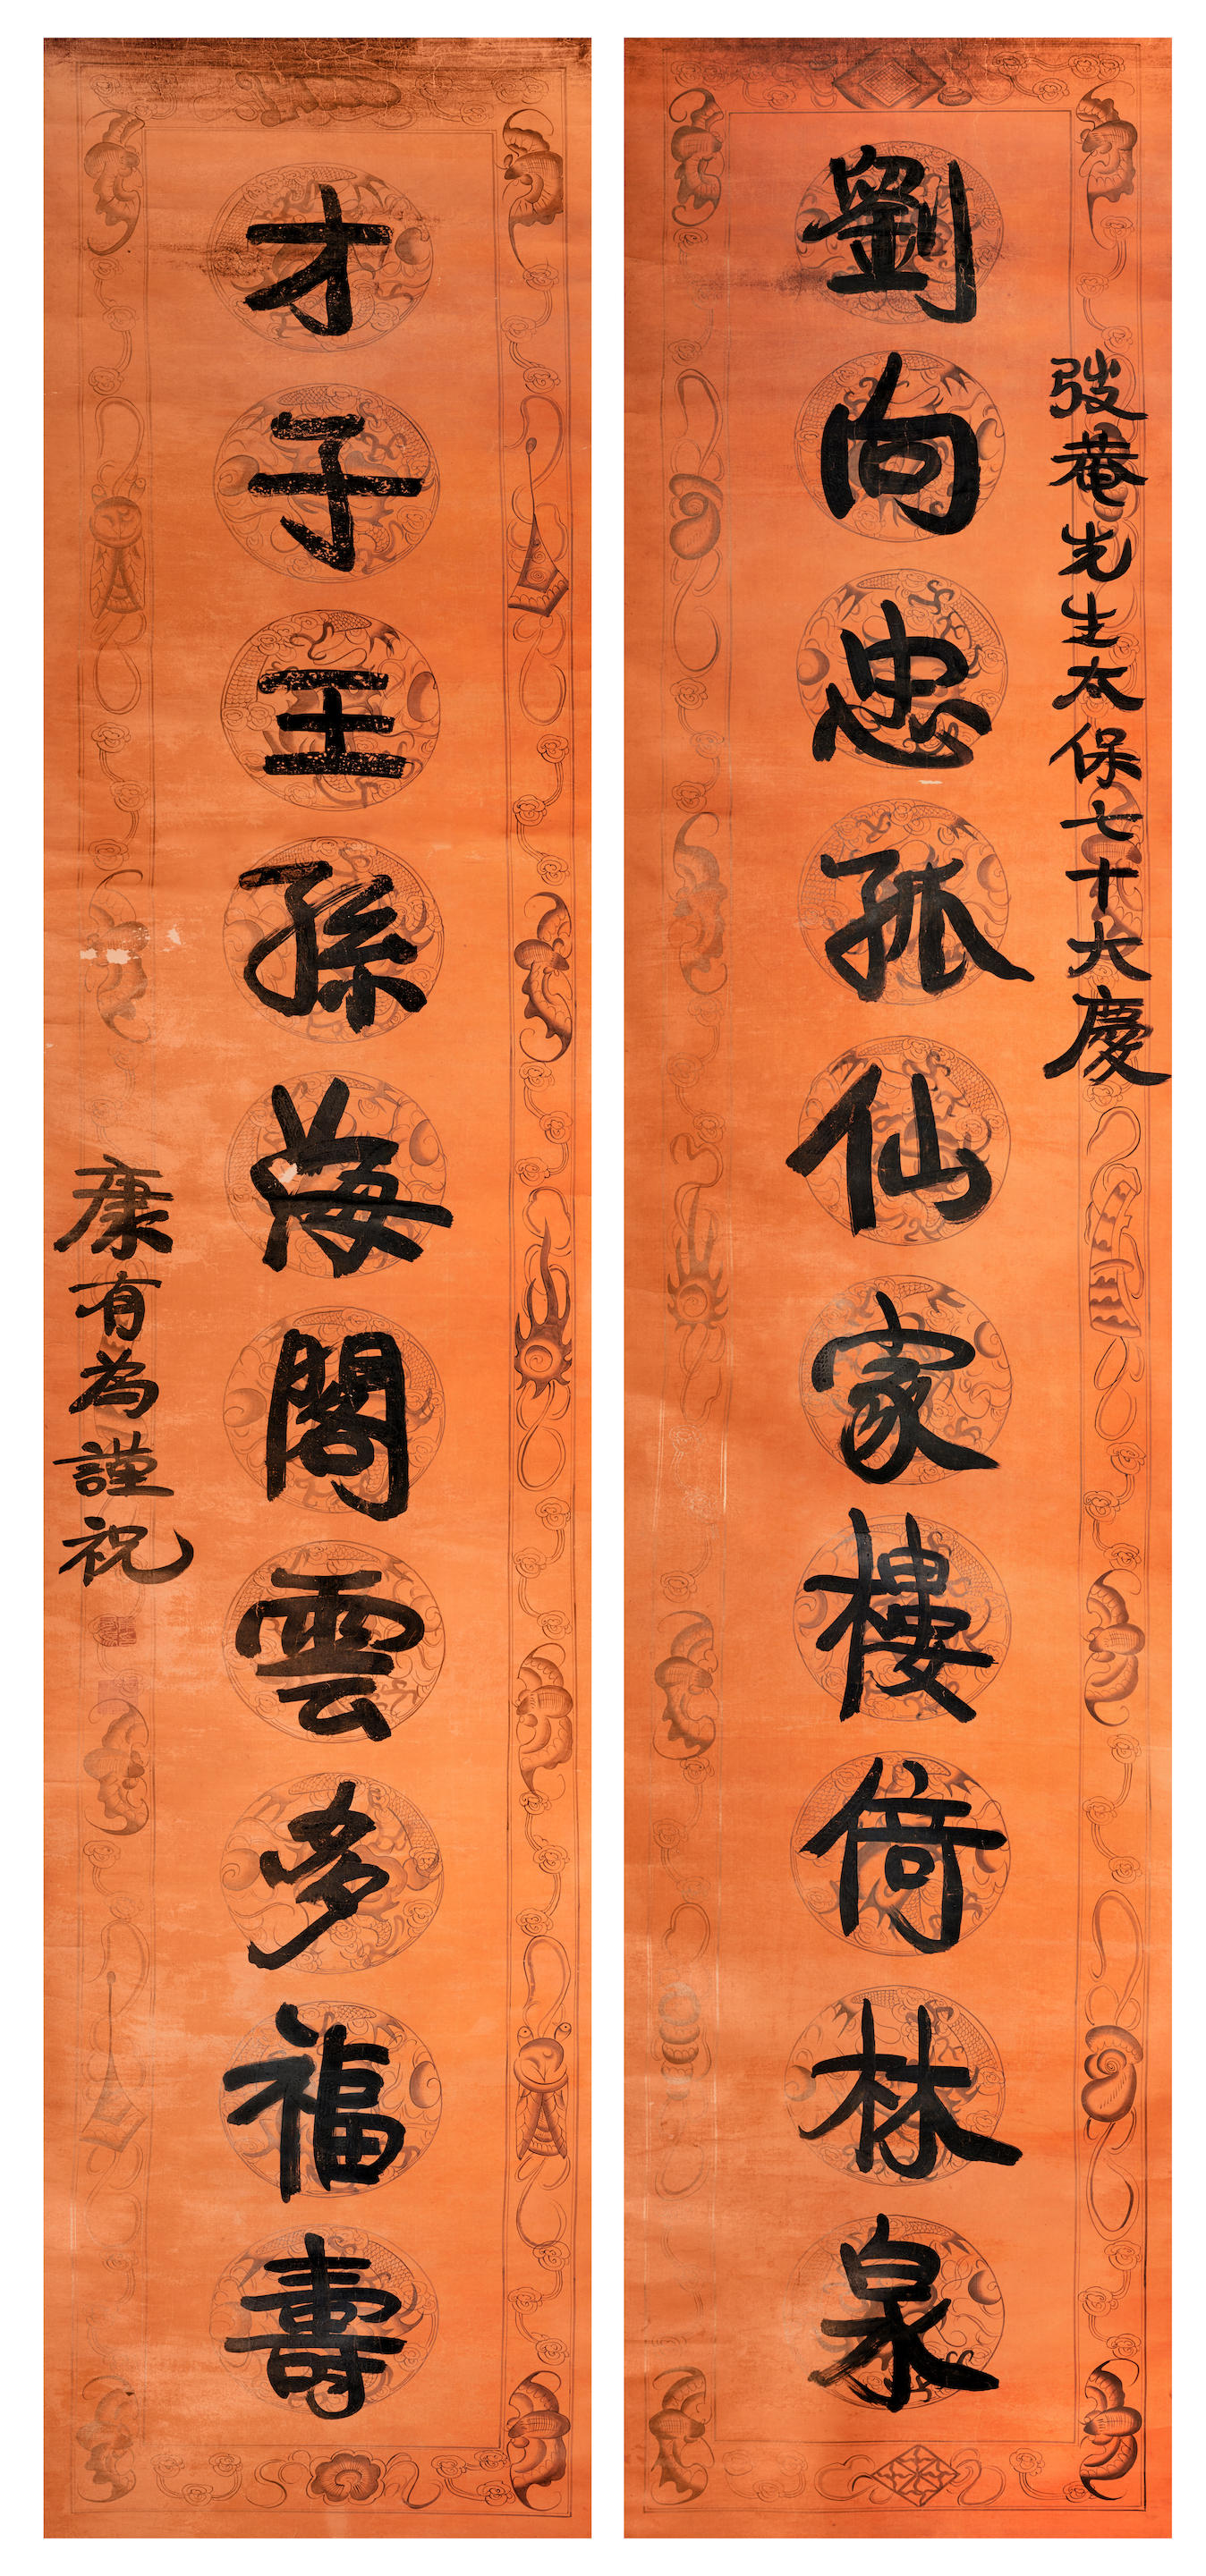 弢菴先生太保七十大慶
劉向忠孤仙家樓倚林泉
才子王孫海閣雲多福壽
康有為謹祝